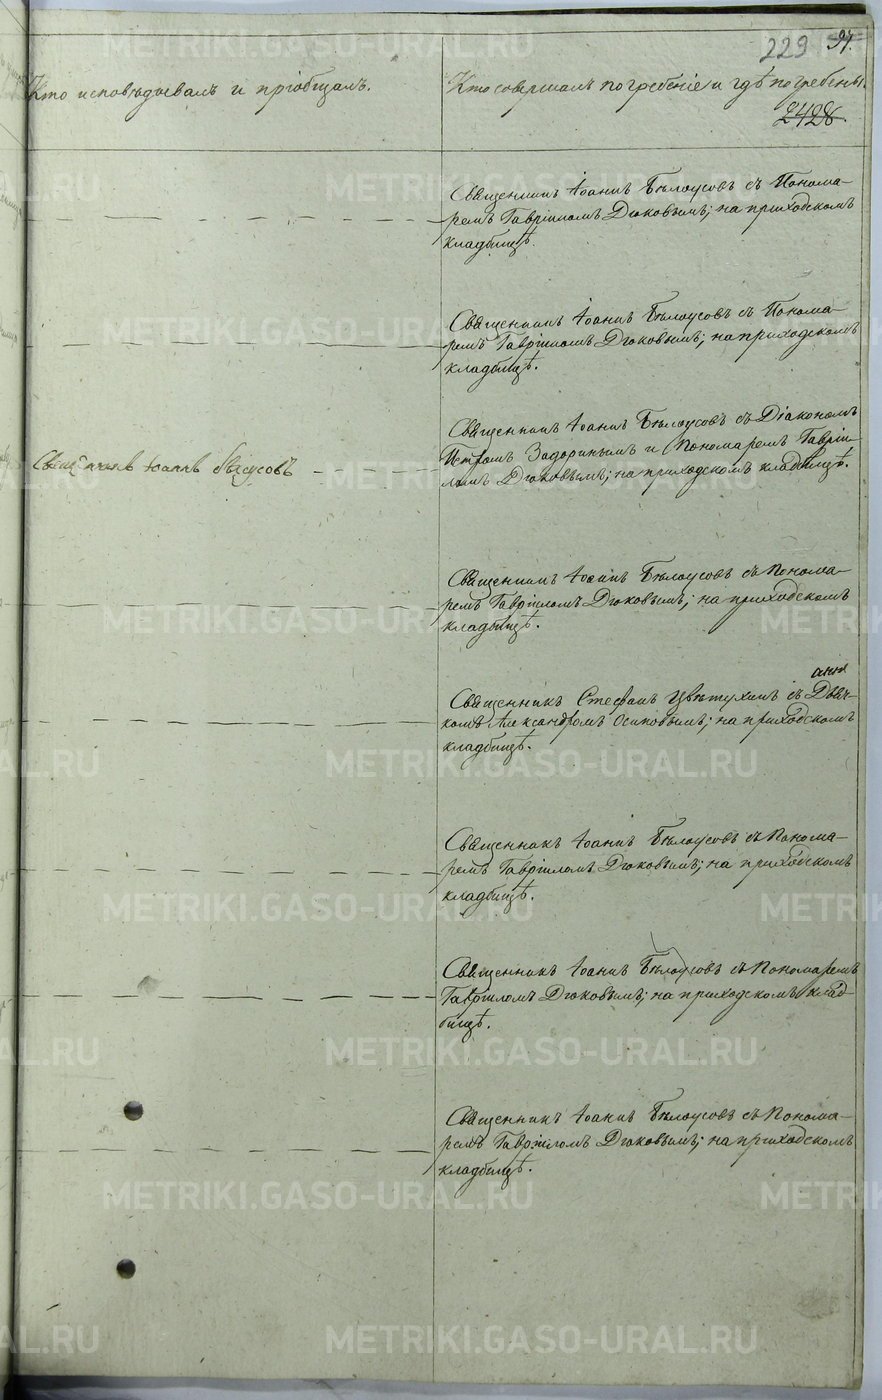 229 97.
Кто исповѣдывалъ и пріобщалъ.
Кто совершалъ погребеніе и гдѣ погребены.
2428.
Священникъ Іоаннъ Бѣлоусовъ съ Понома-
ремъ Гавріиломъ Дюковымъ; на приходскомъ
кладбищѣ.
Священникъ Іоаннъ Бѣлоусовъ съ Понома-
ремъ Гавріиломъ Дюковымъ; на приходскомъ
кладбищѣ.
Священникъ Іоаннъ Бѣлоусовъ съ Діакономъ
Петромъ Задоринымъ и Пономаремъ Гавріи-
ломъ Дюковымъ; на приходскомъ кладбищѣ.
Священникъ Іоаннъ Бѣлоусовъ
Священникъ Іоаннъ Бѣлоусовъ съ Понома-
ремъ Гавріиломъ Дюковымъ; на приходскомъ
кладбищѣ.
Священникъ Стефанъ Цвѣтухинъ съ
комъ Александромъ Осиповымъ; на приходскомъ
кладбищѣ.
Священникъ Іоаннъ Бѣлоусовъ съ Понома-
ремъ Гавріиломъ Дюковымъ; на приходскомъ
кладбищѣ.
Священникъ Іоаннъ Бѣлоусовъ съ Пономаремъ
Гавріиломъ Дюковымъ; на приходскомъ клад-
бищѣ.
Священникъ Іоаннъ Бѣлоусовъ съ Понома-
ремъ Гавріиломъ Дюковымъ; на приходскомъ
кладбищѣ.
METRIKI.GASO-URAL.RU